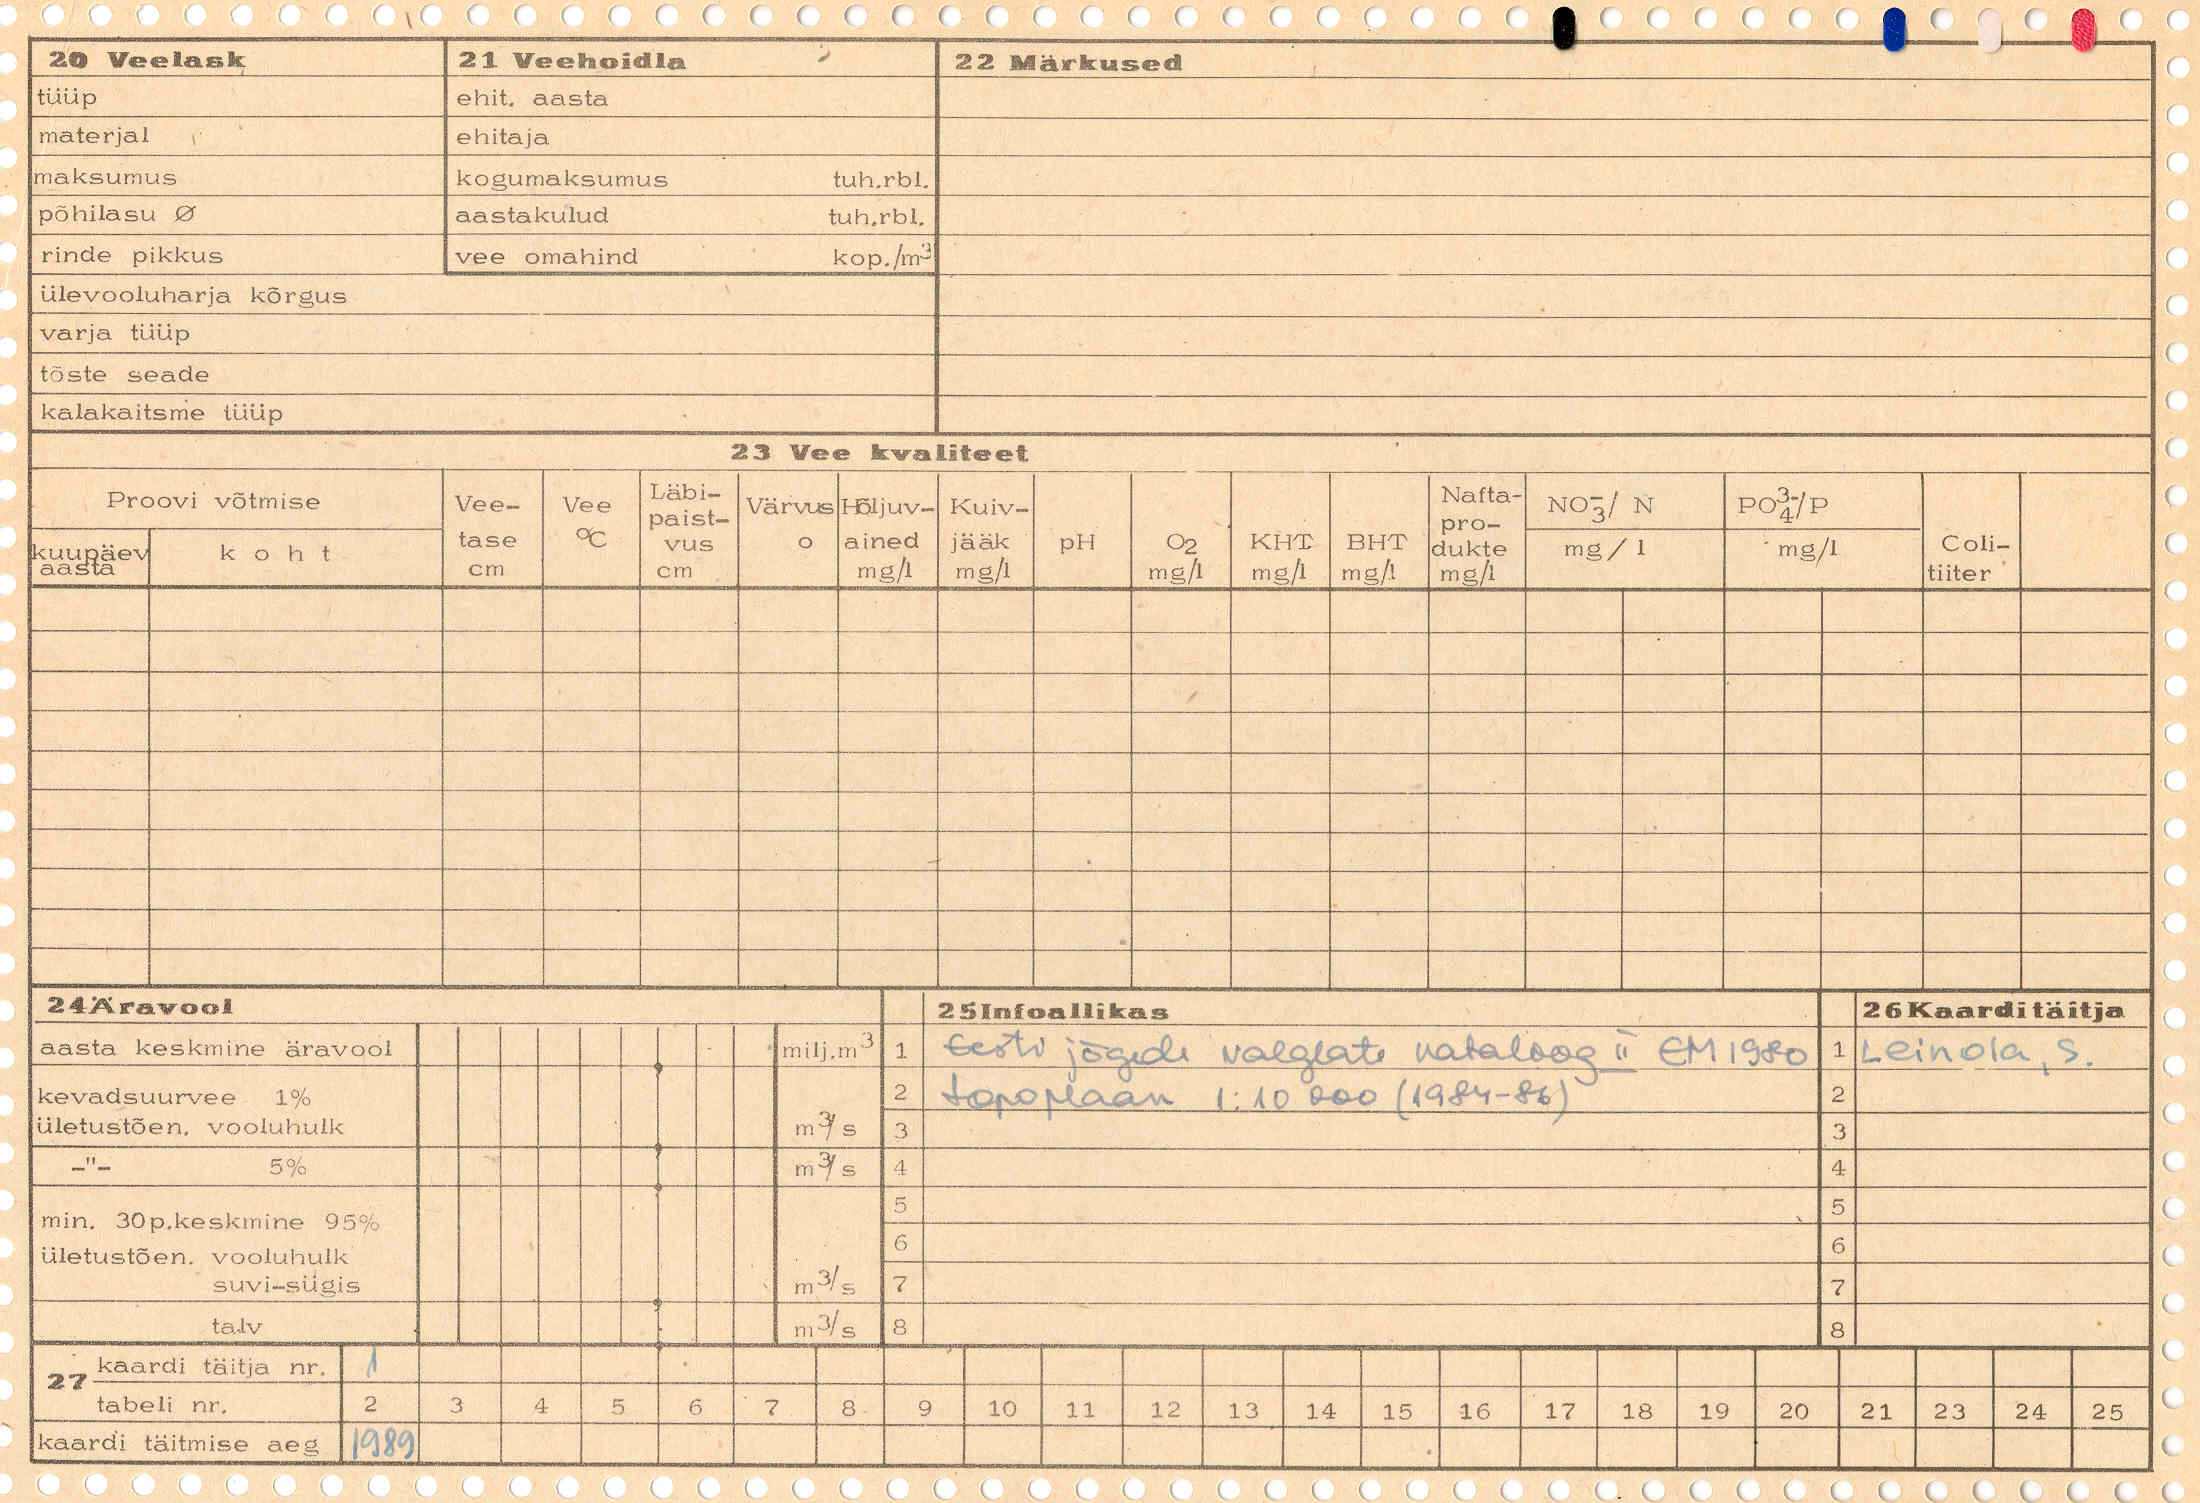 20 Veelask
tüüp
materjal
maksumus
põhilasu Ø
rinde pikkus
ülevooluharja kõrgus
varja tüüp
tõste seade
kalakaitsme tüüp
21 Veehoidla
ehit. aasta
ehitaja
kogumaksumus tuh.rbl.
aastakulud tuh.rbl.
vee omahind kop./m³
22 Märkused
23 Vee kvaliteet
Proovi võtmise
kuupäev
aasta
koht
Vee-
tase
cm
Vee
°C
Läbi-
paist-
vus
cm
Värvus
o
Hõljuv-
ained
mg/l
Kuiv-
jääk
mg/l
pH
O2
mg/l
KHT
mg/l
BHT
mg/l
Nafta-
pro-
dukte
mg/l
NO3-/ N
mg/l
PO4 3-/P
mg/l
Coli-
tiiter
24 Äravool
aasta keskmine äravool milj.m³
kevadsuurvee 1%
ületustõen. vooluhulk m³/s
-"- 5% m³/s
min. 30p.keskmine 95%
ületustõen. vooluhulk
suvi-sügis m³/s
talv m³/s
25 Infoallikas
1 Eesti jõgede valglate kataloog II EM 1980
2 topoplaan 1:10 000 (1984-86)
3
4
5
6
7
8
26 Kaarditäitja
1 Leinola, S.
2
3
4
5
6
7
8
27
kaardi täitja nr. 1
tabeli nr. 2 3 4 5 6 7 8 9 10 11 12 13 14 15 16 17 18 19 20 21 23 24 25
kaardi täitmise aeg 1989